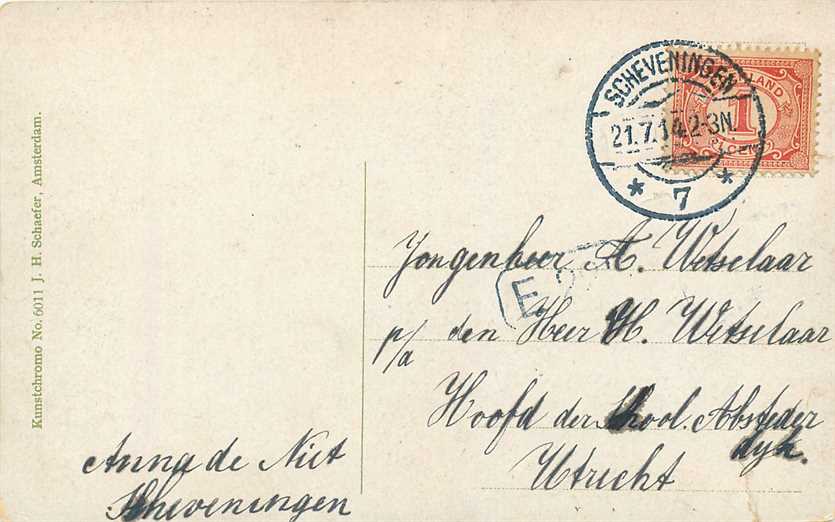 Kunstchromo No. 6011 J. H. Schaefer, Amsterdam.
SCHEVENINGEN
21.7.14.2-3N.
* 7 *
LAND
1
E
Jongenheer A. Wetselaar
p/a den Heer H. Wetselaar
Hoofd der School. Absteder
dijk.
Utrecht
Anna de Niet
Scheveningen